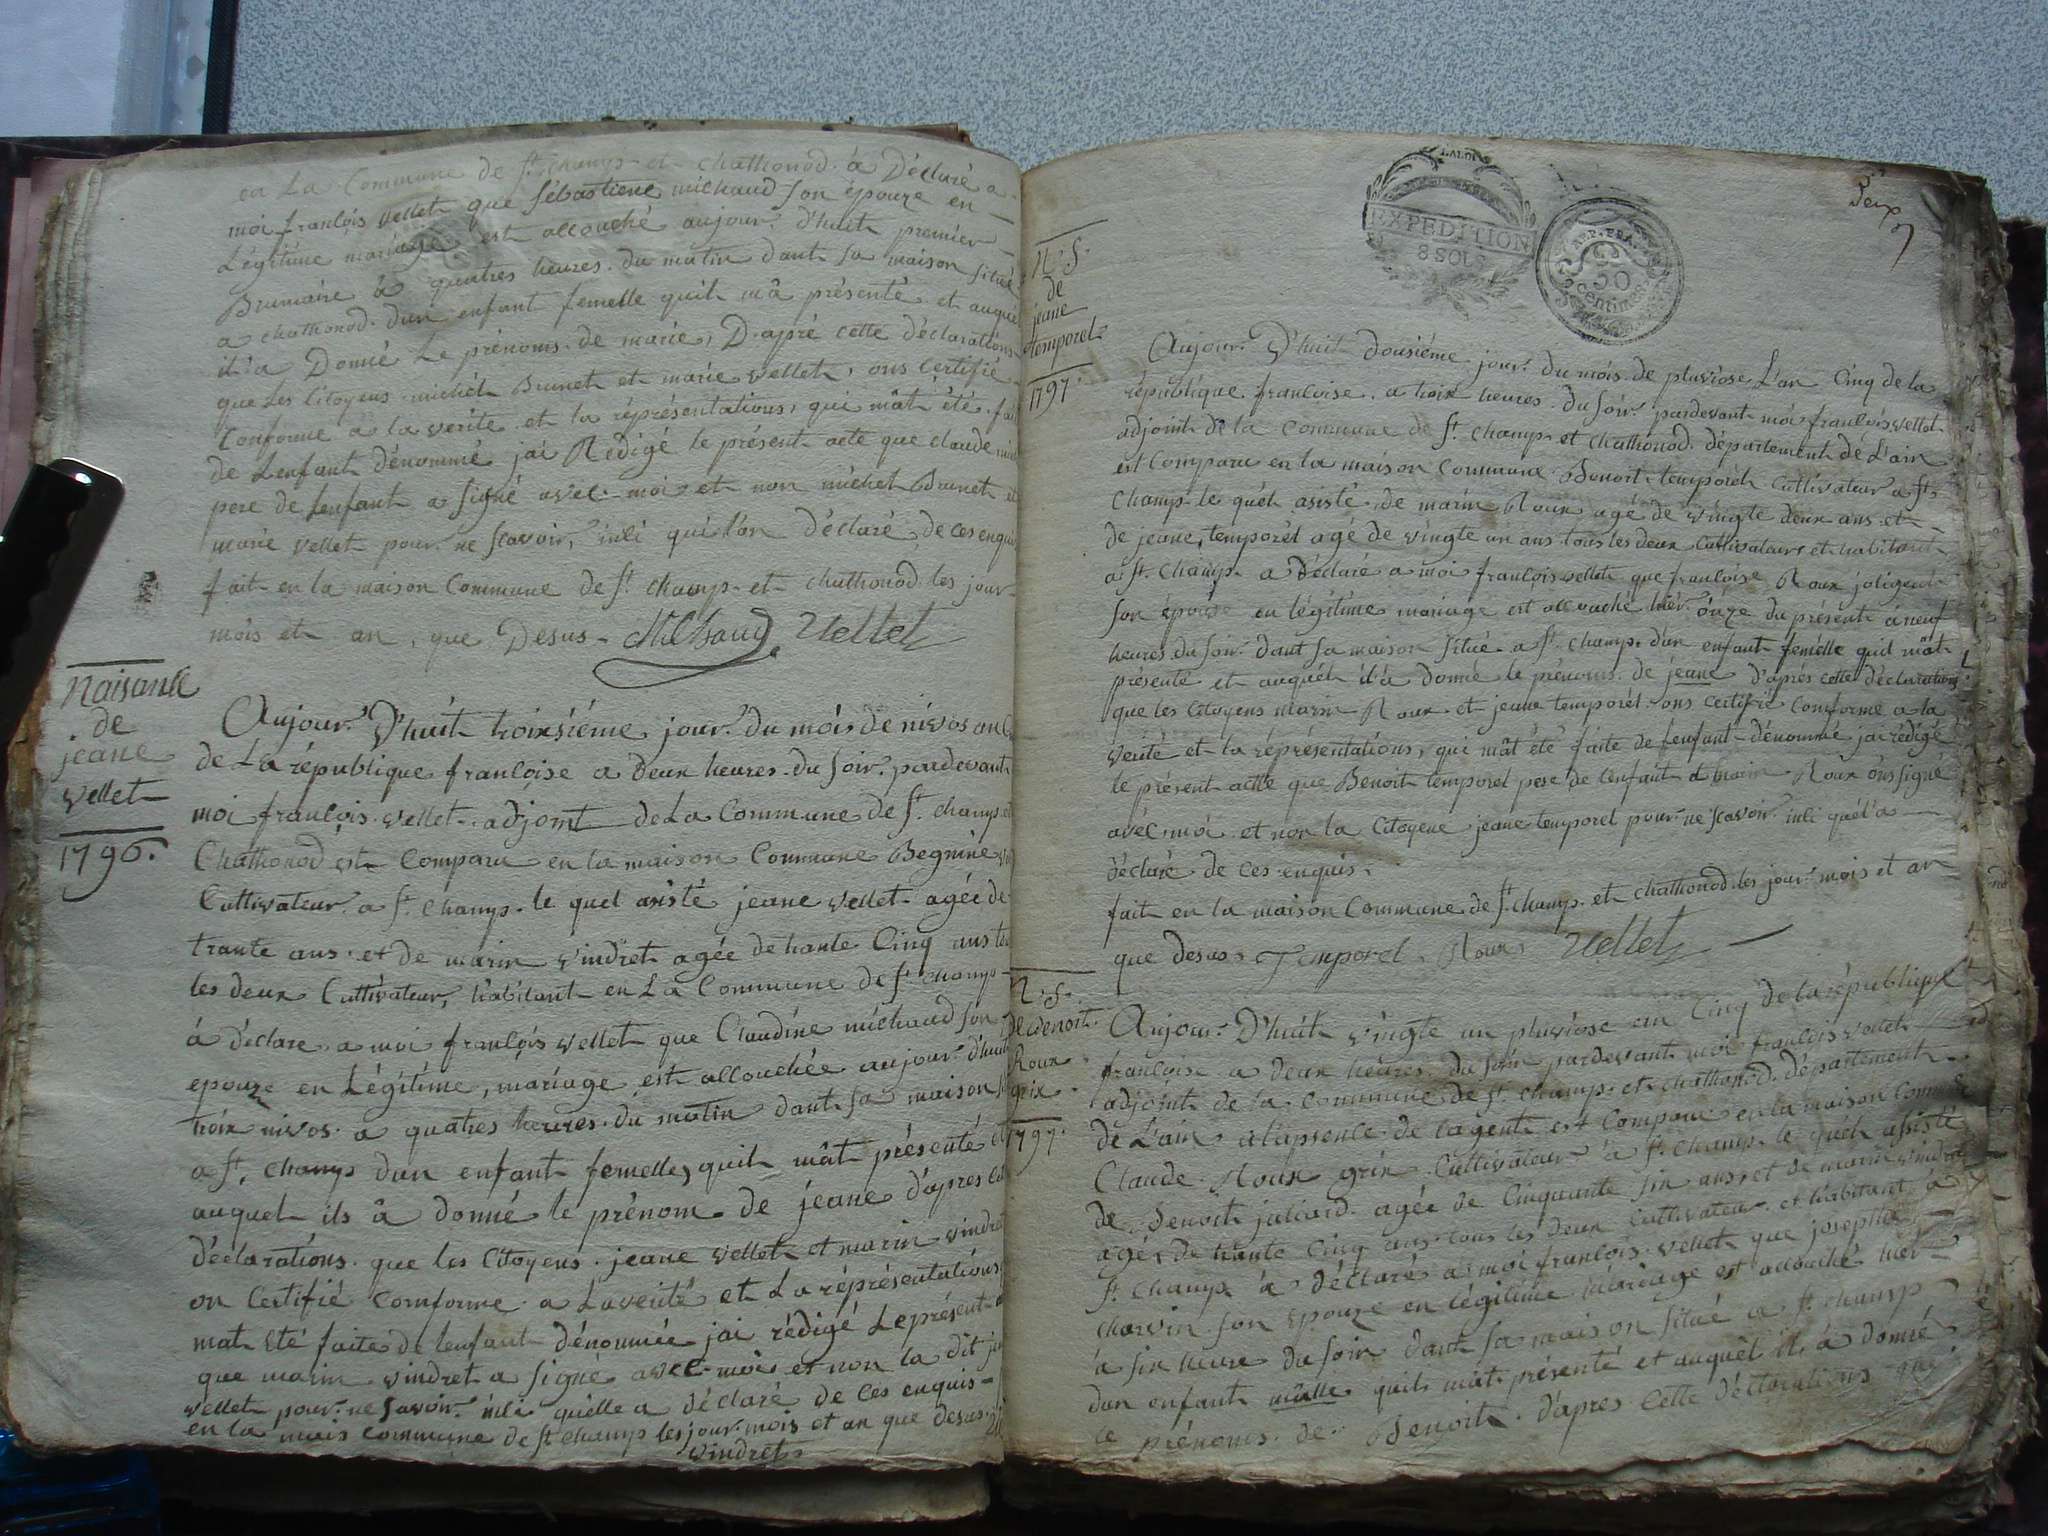 en La Commune de St. champ et chathonod à Déclaré a
moi françois vellet que Sébastiene michaud son épouze en
Légitime mariage est allouché aujour d'huit premier
Brumaire à quatres heures du matin dant sa maison situé
a chathonod d'un enfant femelle quil mâ présenté et auquel
il à Donné Le prénoms de marie, D'apré cette déclarations
que Les Citoyens michel Brunet et marie vellet, ons Certifié
Conforme a la verité et la réprésentations, qui mât été fai
de Lenfant dénommé jai Rédigé le présent acte que claude mic
pere de Lenfant a signé avec moi et non michel Brunet et
marie vellet pour ne scavoir, inli qui l'on déclaré, de ces enqui
fait en la maison Commune de St. champ et chathonod les jour
mois et an, que Desus Michaud Vellet
Naisanse
de
jeane
vellet
1796.
Aujour D'huit troixsiéme jour du mois de nivos an C
de La république françoise a deux heures du soir pardevant
moi françois vellet adjoint de La Commune de St. champ et
Chathonod est Comparu en la maison Commune Begniné
Cultivateur a St. champ le quel asisté jeane vellet agée de
trante ans et de marin vindret agée de trante Cinq ans to
les deux Cultivateur, habitant en La Commune de St. champ
à déclaré a moi françois vellet que Claudine michaud son
epouze en Légitime, mariage est allouchée aujour d'huit
troix nivos a quatres heures du matin dant sa maison
a St. champ d'un enfant femelle, quil mât présenté et
auquel ils à donné le prénom de jeane d'apres
déclarations que les Citoyens jeane vellet et marin vindret
on Certifié comforme a La verité et La réprésentations
mat eté faite de lenfant dénommée jai rédigé Le présent
que marin vindret a signé avec moi et non la dit
vellet pour ne savoir inli quélle a déclaré de ces enquis
en la mais commune de St champ les jour mois et an que desus
vindret
Deux
EXPEDITION
8 SOLS
REP. FRA.
50
Centimes
N. S.
de
jeane
temporel
1797.
Aujour D'huit dousiéme jour du mois de pluviose L'an Cinq de la
république françoise, a troix heures du soir pardevant moi françois vellet
adjoint de la Commune de St. champ et chathonod département de L'ain
est Comparu en la maison Commune Benoit temporel Cultivateur a St.
champ le quél asisté de marin Roux agé de vingte deux ans et
de jeane, temporél agé de vingte un ans tous les deux Cultivateurs et habitant
a St. champ a Déclaré a moi françois vellet que françoise Roux joligent
son épouse en légitime mariage est allouché hier onze du présent à neuf
heures du soir dant sa maison situé a St. champ d'un enfant femélle quil mât
présenté et auquél il'à donné le prénoms de jeane D'aprés cette déclarations
que les Citoyens marin Roux et jeane temporél ons certifié Comforme a la
verité et la réprésentations, qui mât été faite de Lenfant dénommé jai rédigé
le présent acte que Benoit temporel pere de Lenfant et marin Roux ons signé
avéc moi et non la Citoyene jeane temporel pour ne scavoir inli quél'a
déclaré de ces enquis,
fait en la maison Commune de St. champ et chathonod les jour mois et an
que desus Temporel Roux Vellet
N. S.
de Benoit
Roux
grix
1797.
Aujour D'huit vingte un pluviose en Cinq de la république
françoise a deux heures du soir pardevant moi françois vellet
adjoint de la Commune de St. champ et chathonod département
de L'ain a l'apsence de lagent est Comparu en la maison Comme
Claude Roux grix Cultivateur à St. champ le quél assisté
de Benoit juliard agée de Cinquante six ans et de marin vindret
agés de trante Cinq ans tous les deux Cultivateur et habitant à
St. champ à déclaré a moi françois vellet que josephte
charvin son epouze en légitime mariage est allouché hier
à six heure du soir dant sa maison situé a St. champ
d'un enfant mâlle quil mât présenté et auquél il à donné
le prénoms de Benoit d'apres Cette déclarations que